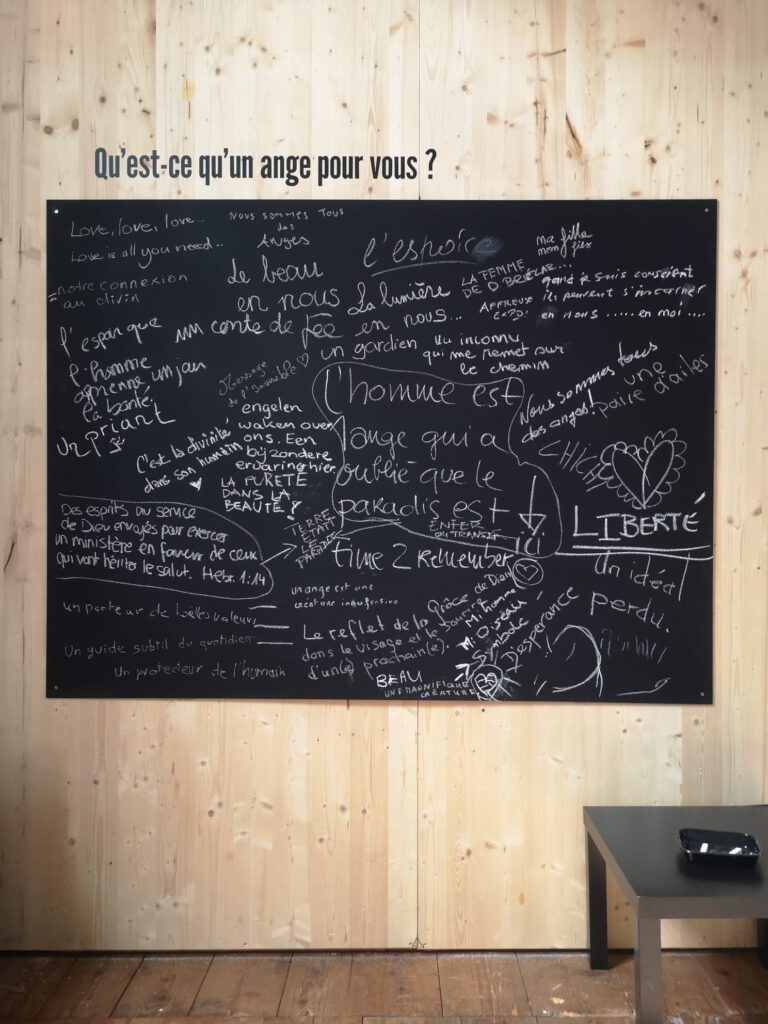 Qu'est-ce qu'un ange pour vous ?
Love, love, love...
Love is all you need..
notre connexion
au divin
Nous sommes tous
des
Anges
l'espoir
Ma fille
mon fils
Le beau
en nous
La lumière
en nous...
LA FEMME
AFFREUSE
quand je suis conscient
ils peuvent s'incarner
en nous ..... en moi ....
un conte de fée
un gardien
Un inconnu
qui me remet sur
le chemin
l'espoir que
l'homme
apprenne un jour
la bonté.
Un priant
Message
de l'invisible
l'homme est
l'ange qui a
oublié que le
paradis est
ici
Nous sommes tous
des anges!
une
paire d'ailes
engelen
waken over
ons. Een
bijzondere
ervaring hier.
C'est la divinité
dans son humain
LA PURETÉ
DANS LA
BEAUTÉ!
CHICH
LIBERTÉ
Des esprits au service
de Dieu envoyés pour exercer
un ministère en faveur de ceux
qui vont hériter le salut. Hébr. 1:14
TERRE
ÉTAIT
LE
PARADIS
ENFER
OU TRANSIT
time 2 Remember
Un idéal
perdu.
un ange est une
créature inoffensive
un porteur de belles valeurs
Un guide subtil du quotidien
Un protecteur de l'humain
Le reflet de la Grâce de Dieu
dans le visage et le sourire
d'un(e) prochain(e).
Mi homme
Mi Oiseau
Symbole
D'espérance
BEAU
UNE MAGNIFIQUE
CRÉATURE